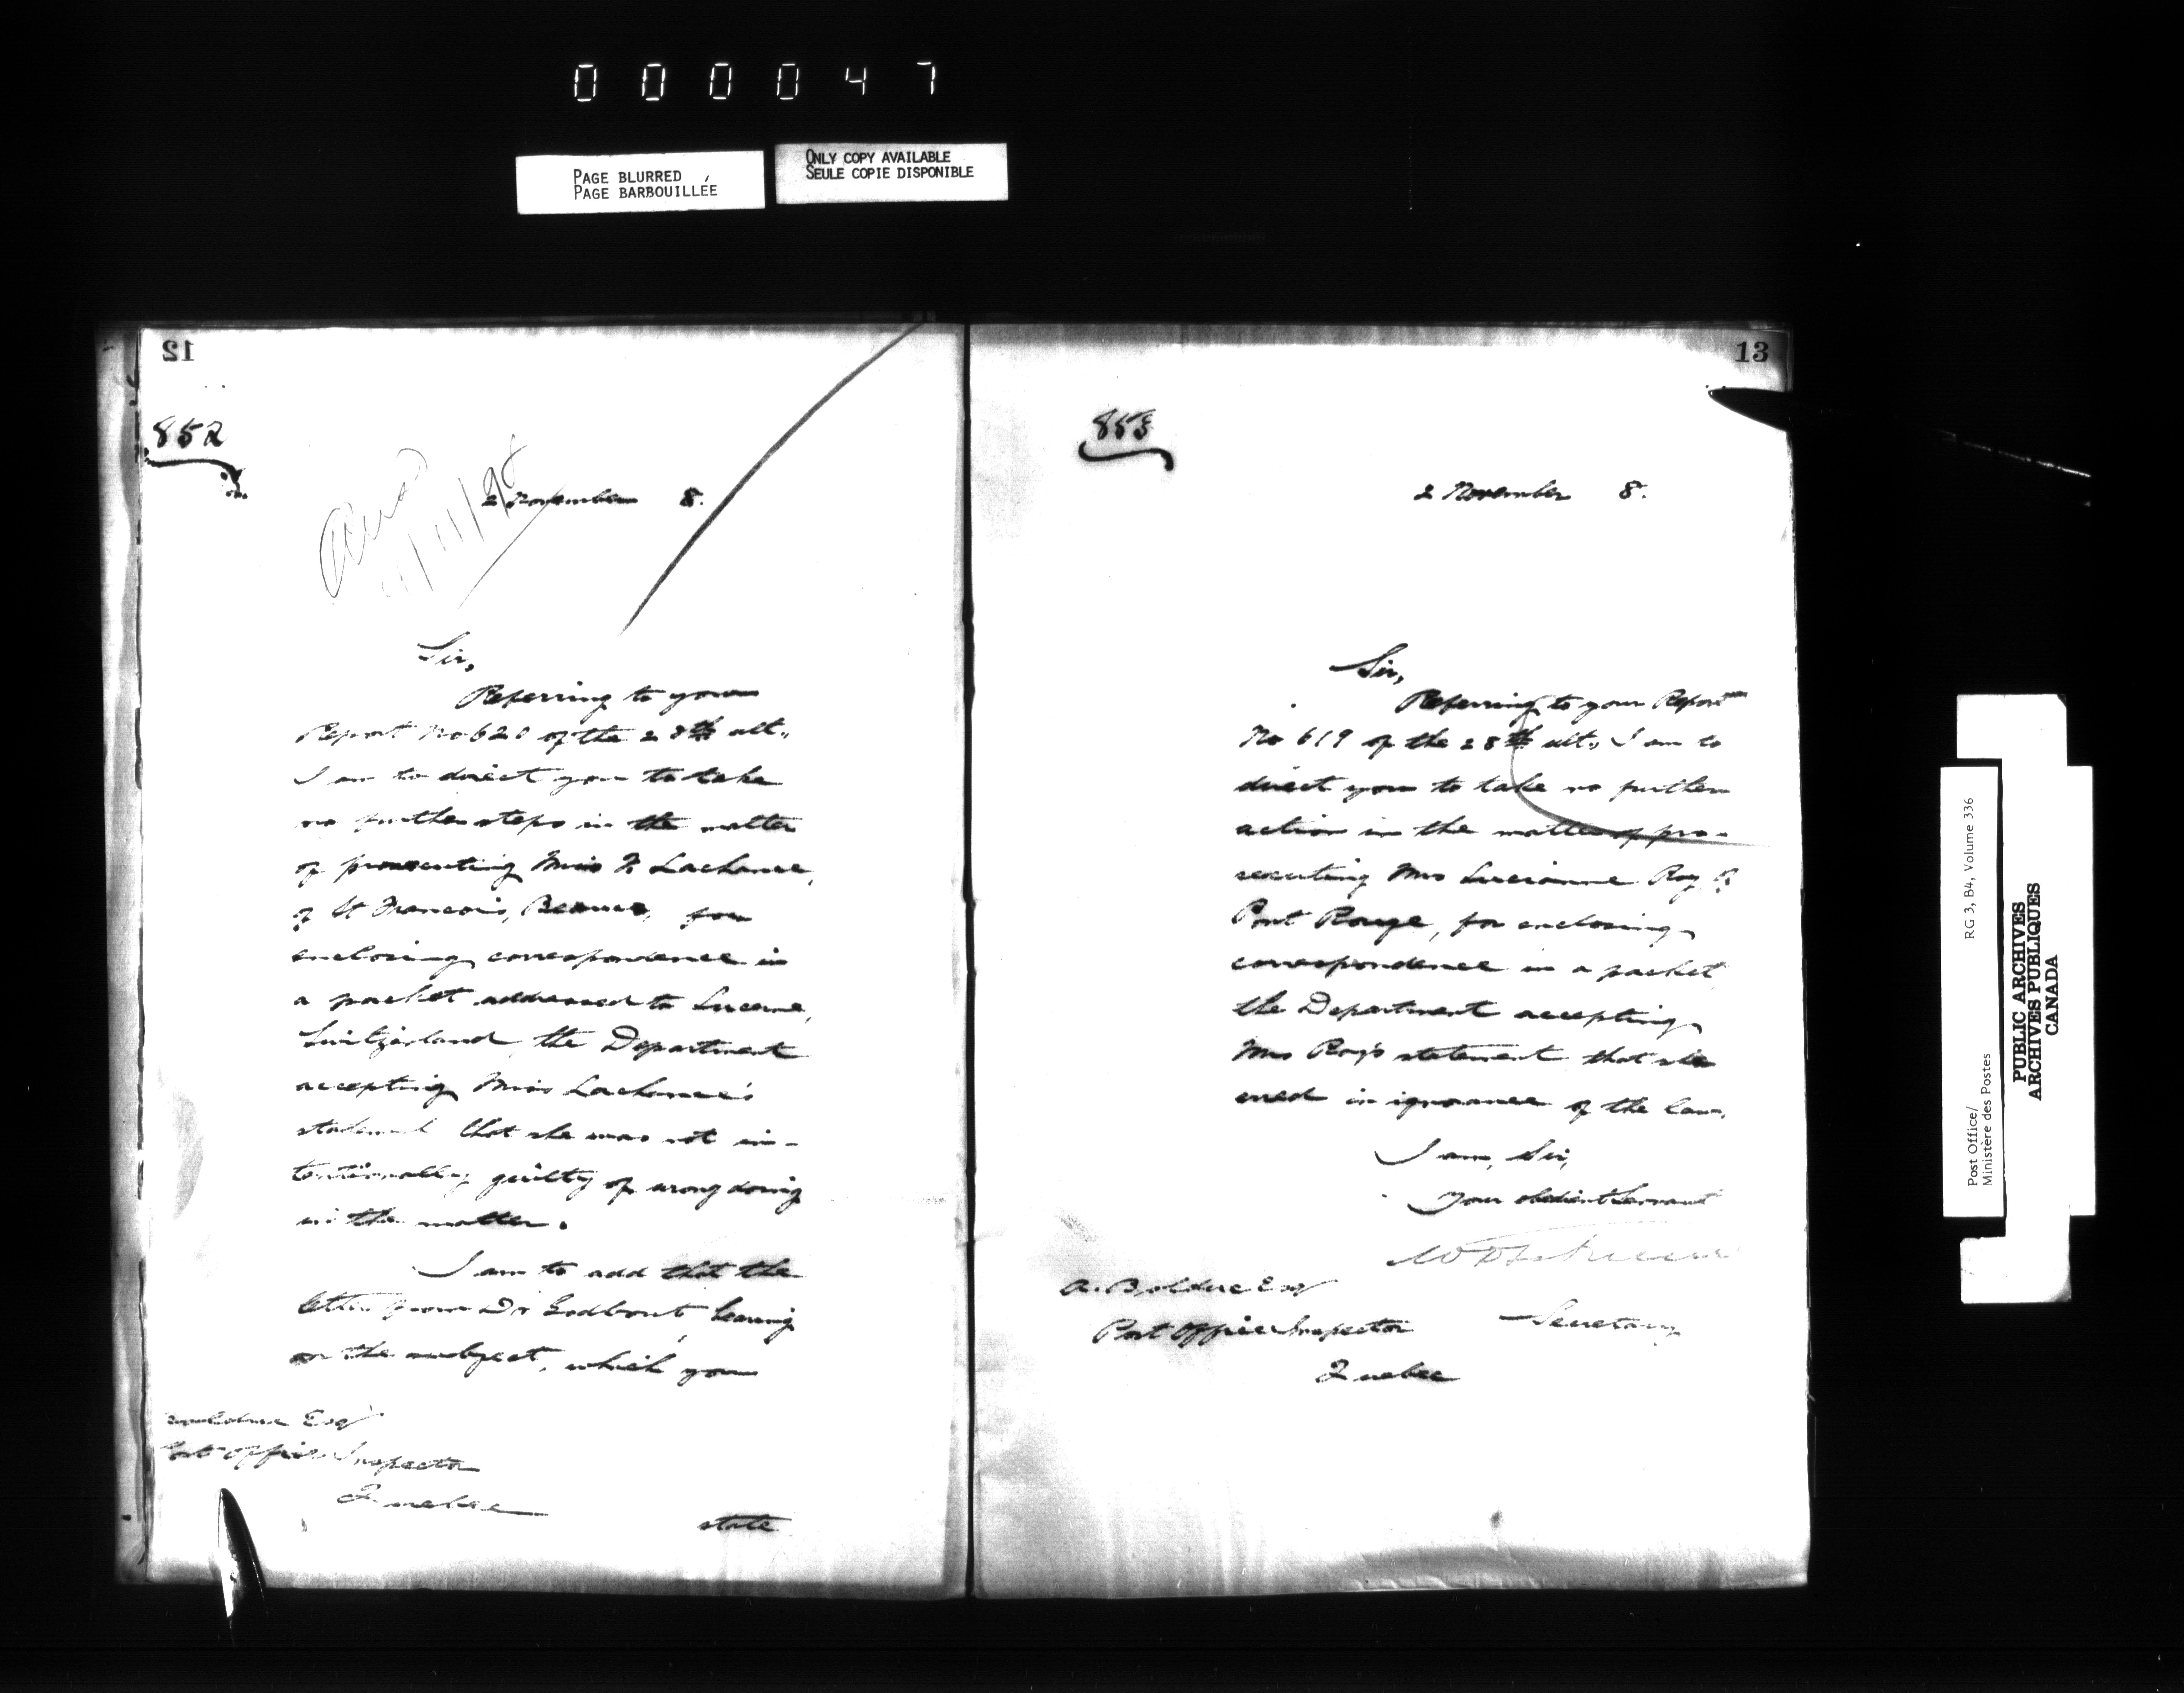 000047
PAGE BLURRED
PAGE BARBOUILLÉE
ONLY COPY AVAILABLE
SEULE COPIE DISPONIBLE
12
852
11/11/98
2 November 8.
Sir,
Referring to your
Report No 620 of the 28th ult.,
I am to direct you to take
no further steps in the matter
of prosecuting Miss Lachance,
of St Francois, Beauce, for
enclosing correspondence in
a packet addressed to Lucerne,
Switzerland, the Department
accepting Miss Lachance's
statement that she was not in-
tentionally guilty of wrong doing
in the matter.
I am to add that the
letter from Dr Godbout bearing
on the subject, which you
Bolduc Esq
Post Office Inspector
Quebec
state
13
853
2 November 8.
Sir,
Referring to your Report
No 619 of the 28th ult., I am to
direct you to take no further
action in the matter of pro-
secuting Mrs Lucianne Roy of
Pont Rouge, for enclosing
correspondence in a packet
the Department accepting
Mrs Roy's statement that she
erred in ignorance of the law.
I am, Sir,
Your obedient Servant
A. Bolduc Esq
Post Office Inspector
Secretary
Quebec
Post Office/
Ministère des Postes
RG 3, B4, Volume 336
PUBLIC ARCHIVES
ARCHIVES PUBLIQUES
CANADA